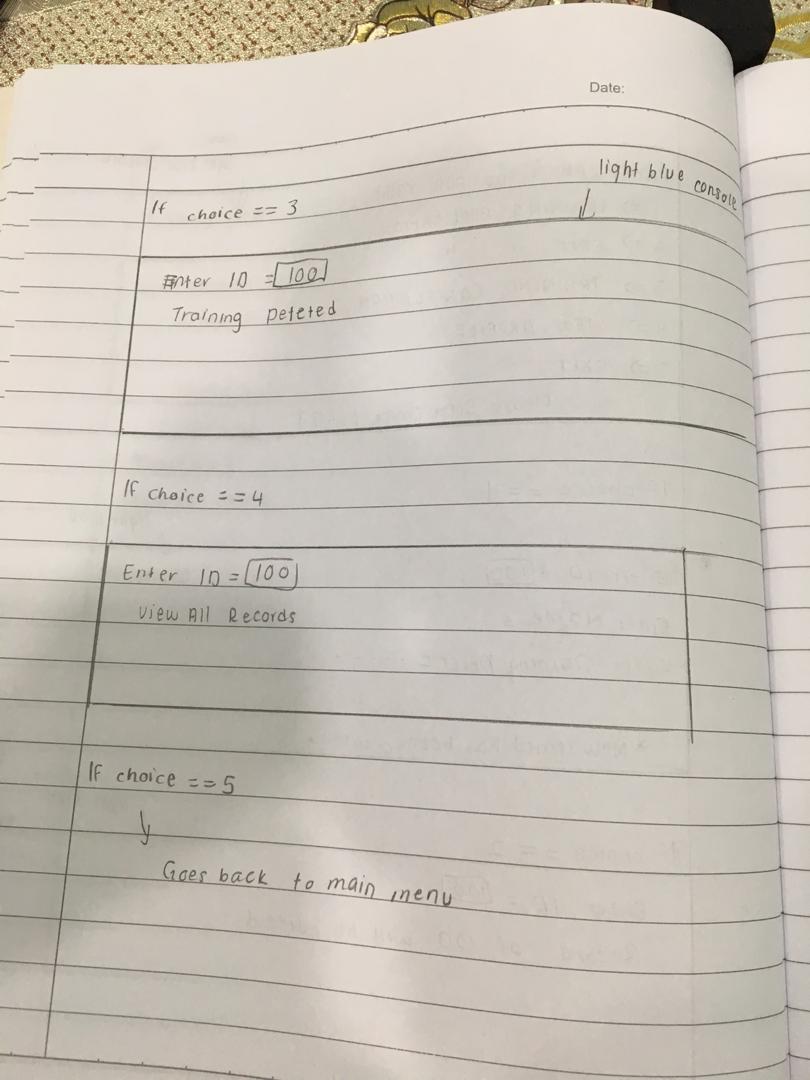 Date:
light blue console
If choice == 3
Enter ID = 100
Training Deleted
If choice == 4
Enter ID = 100
View All Records
If choice == 5
Goes back to main menu